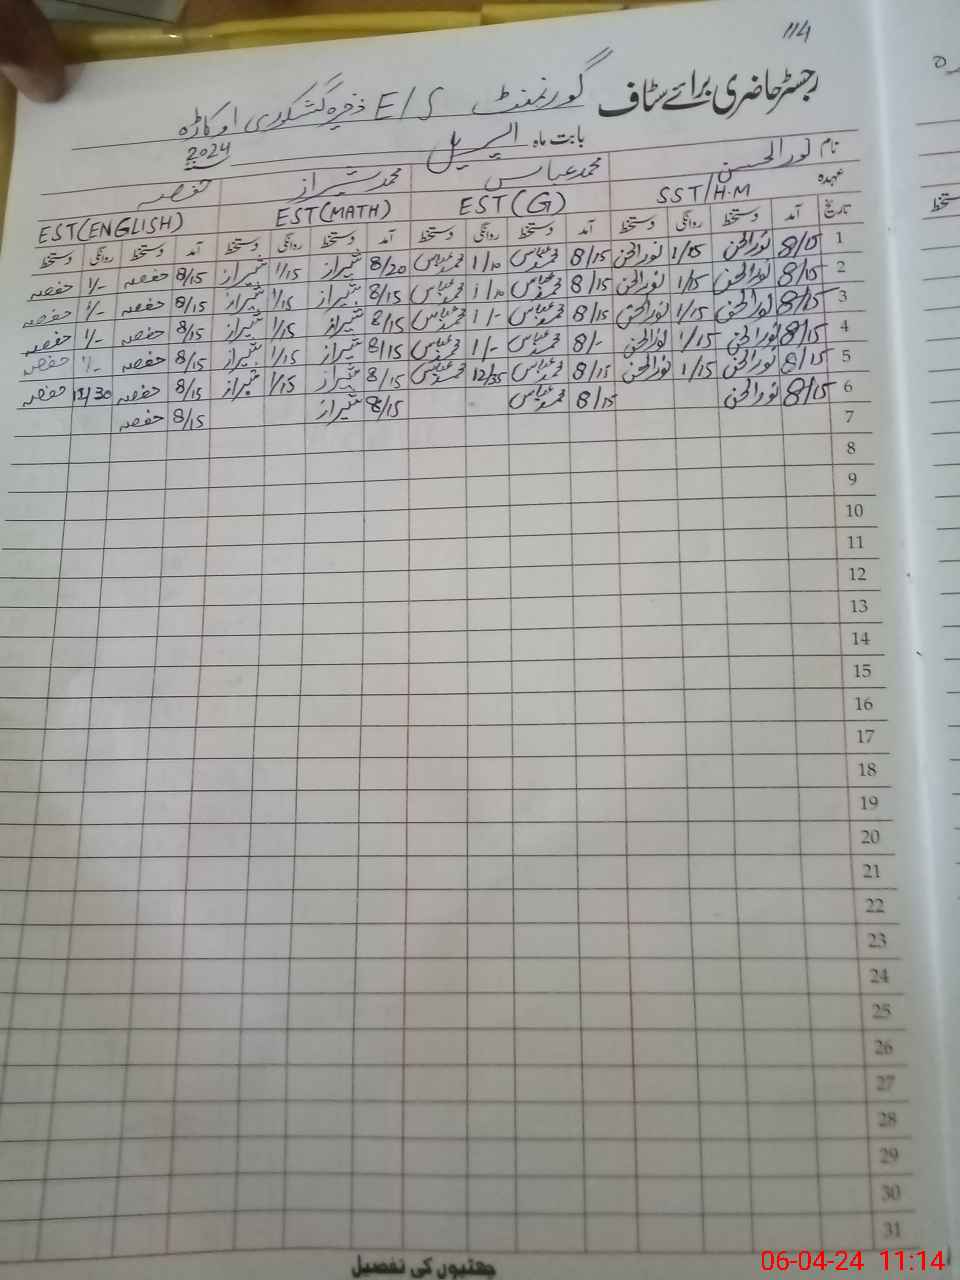 114
رجسٹر حاضری برائے سٹاف گورنمنٹ E/S ذخیرہ گشکوری اوکاڑہ
بابت ماہ اپریل 2024
نام نور الحسن محمد عباس محمد شیراز حفصہ
عہدہ SST/H.M EST(G) EST(MATH) EST(ENGLISH)
تاریخ آمد دستخط روانگی دستخط آمد دستخط روانگی دستخط آمد دستخط روانگی دستخط آمد دستخط روانگی دستخط
1 8/15 نورالحسن 1/15 نورالحسن 8/15 محمد عباس 1/10 محمد عباس 8/20 شیراز 1/15 شیراز 8/15 حفصہ 1/- حفصہ
2 8/15 نورالحسن 1/15 نورالحسن 8/15 محمد عباس 1/10 محمد عباس 8/15 شیراز 1/15 شیراز 8/15 حفصہ 1/- حفصہ
3 8/15 نورالحسن 1/15 نورالحسن 8/15 محمد عباس 1/- محمد عباس 8/15 شیراز 1/15 شیراز 8/15 حفصہ 1/- حفصہ
4 8/15 نورالحسن 1/15 نورالحسن 8/- محمد عباس 1/- محمد عباس 8/15 شیراز 1/15 شیراز 8/15 حفصہ 1/- حفصہ
5 8/15 نورالحسن 1/15 نورالحسن 8/15 محمد عباس 12/35 محمد عباس 8/15 شیراز 1/15 شیراز 8/15 حفصہ 12/30 حفصہ
6 8/15 نورالحسن 8/15 محمد عباس 8/15 شیراز 8/15 حفصہ
7
8
9
10
11
12
13
14
15
16
17
18
19
20
21
22
23
24
25
26
27
28
29
30
31
چھٹیوں کی تفصیل
06-04-24 11:14